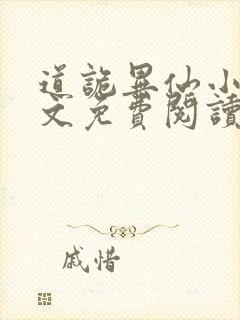 道詭異仙小
文免費閱讀
戚惜